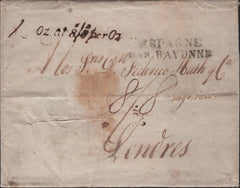 1 Oz. at 2/2 per Oz
ESPAGNE
PAR BAYONNE
A los Srs
Federico Huth y Ca
8/8
Londres